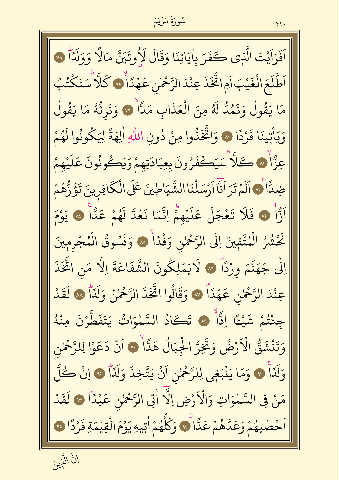 سُورَةُ مَرْيَمَ
اَفَرَاَيْتَ الَّذ۪ي كَفَرَ بِاٰيَاتِنَا وَقَالَ لَاُو۫تَيَنَّ مَالًا وَوَلَدًا ﴿٧٧﴾
اَطَّلَعَ الْغَيْبَ اَمِ اتَّخَذَ عِنْدَ الرَّحْمٰنِ عَهْدًا ﴿٧٨﴾ كَلَّا سَنَكْتُبُ
مَا يَقُولُ وَنَمُدُّ لَهُ مِنَ الْعَذَابِ مَدًّا ﴿٧٩﴾ وَنَرِثُهُ مَا يَقُولُ
وَيَأْت۪ينَا فَرْدًا ﴿٨٠﴾ وَاتَّخَذُوا مِنْ دُونِ اللّٰهِ اٰلِهَةً لِيَكُونُوا لَهُمْ
عِزًّا ﴿٨١﴾ كَلَّا سَيَكْفُرُونَ بِعِبَادَتِهِمْ وَيَكُونُونَ عَلَيْهِمْ
ضِدًّا ﴿٨٢﴾ اَلَمْ تَرَ اَنَّا اَرْسَلْنَا الشَّيَاط۪ينَ عَلَى الْكَافِر۪ينَ تَؤُزُّهُمْ
اَزًّا ﴿٨٣﴾ فَلَا تَعْجَلْ عَلَيْهِمْ اِنَّمَا نَعُدُّ لَهُمْ عَدًّا ﴿٨٤﴾ يَوْمَ
نَحْشُرُ الْمُتَّق۪ينَ اِلَى الرَّحْمٰنِ وَفْدًا ﴿٨٥﴾ وَنَسُوقُ الْمُجْرِم۪ينَ
اِلٰى جَهَنَّمَ وِرْدًا ﴿٨٦﴾ لَا يَمْلِكُونَ الشَّفَاعَةَ اِلَّا مَنِ اتَّخَذَ
عِنْدَ الرَّحْمٰنِ عَهْدًا ﴿٨٧﴾ وَقَالُوا اتَّخَذَ الرَّحْمٰنُ وَلَدًا ﴿٨٨﴾ لَقَدْ
جِئْتُمْ شَيْـًٔا اِدًّا ﴿٨٩﴾ تَكَادُ السَّمٰوَاتُ يَتَفَطَّرْنَ مِنْهُ
وَتَنْشَقُّ الْاَرْضُ وَتَخِرُّ الْجِبَالُ هَدًّا ﴿٩٠﴾ اَنْ دَعَوْا لِلرَّحْمٰنِ
وَلَدًا ﴿٩١﴾ وَمَا يَنْبَغ۪ي لِلرَّحْمٰنِ اَنْ يَتَّخِذَ وَلَدًا ﴿٩٢﴾ اِنْ كُلُّ
مَنْ فِي السَّمٰوَاتِ وَالْاَرْضِ اِلَّا اٰتِي الرَّحْمٰنِ عَبْدًا ﴿٩٣﴾ لَقَدْ
اَحْصٰيهُمْ وَعَدَّهُمْ عَدًّا ﴿٩٤﴾ وَكُلُّهُمْ اٰت۪يهِ يَوْمَ الْقِيٰمَةِ فَرْدًا ﴿٩٥﴾